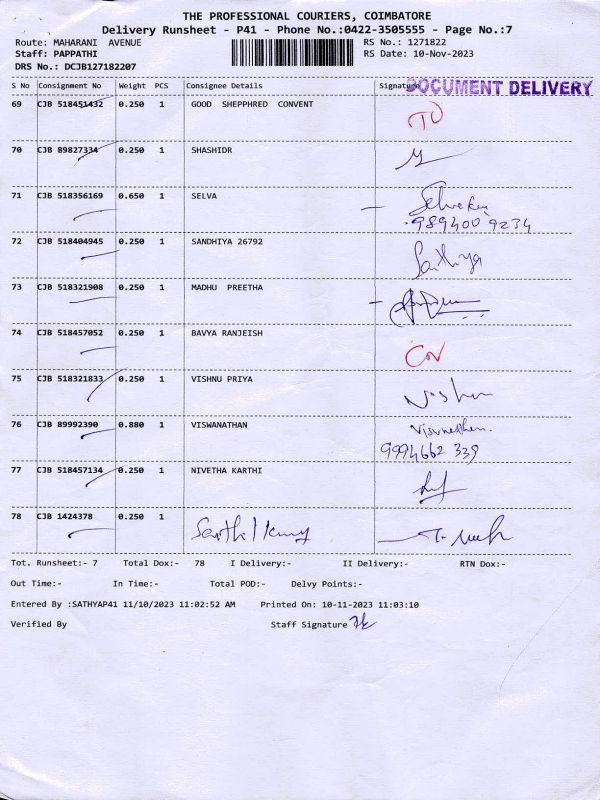 THE PROFESSIONAL COURIERS, COIMBATORE
Delivery Runsheet - P41 - Phone No.:0422-3505555 - Page No.:7
Route: MAHARANI AVENUE RS No.: 1271822
Staff: PAPPATHI RS Date: 10-Nov-2023
DRS No.: DCJB127182207
S No Consignment No Weight PCS Consignee Details Signature DOCUMENT DELIVERY
69 CJB 518451432 0.250 1 GOOD SHEPPHRED CONVENT
70 CJB 89827334 0.250 1 SHASHIDR
71 CJB 518356169 0.650 1 SELVA
989400 9234
72 CJB 518404945 0.250 1 SANDHIYA 26792
73 CJB 518321908 0.250 1 MADHU PREETHA
74 CJB 518457052 0.250 1 BAVYA RANJEISH
75 CJB 518321833 0.250 1 VISHNU PRIYA
76 CJB 89992390 0.880 1 VISWANATHAN
9994662 339
77 CJB 518457134 0.250 1 NIVETHA KARTHI
78 CJB 1424378 0.250 1
Tot. Runsheet:- 7 Total Dox:- 78 I Delivery:- II Delivery:- RTN Dox:-
Out Time:- In Time:- Total POD:- Delvy Points:-
Entered By :SATHYAP41 11/10/2023 11:02:52 AM Printed On: 10-11-2023 11:03:10
Verified By Staff Signature